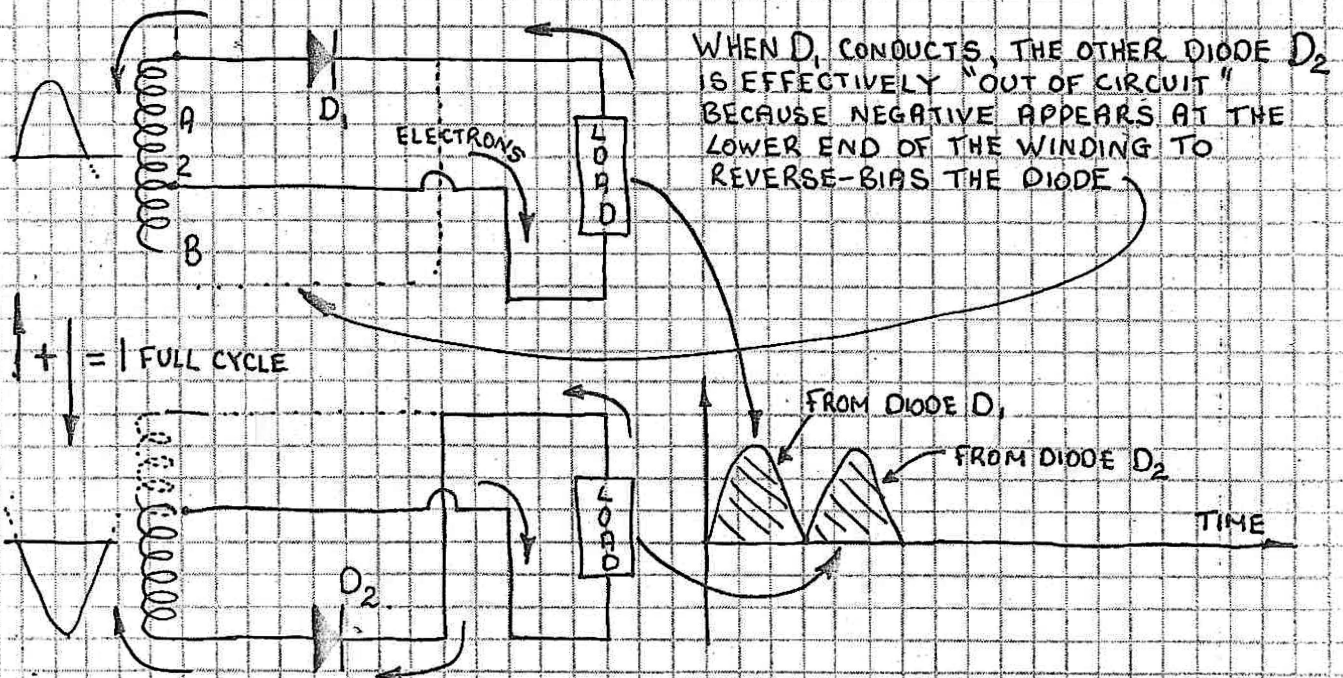 WHEN D₁ CONDUCTS, THE OTHER DIODE D₂
IS EFFECTIVELY "OUT OF CIRCUIT"
BECAUSE NEGATIVE APPEARS AT THE
LOWER END OF THE WINDING TO
REVERSE-BIAS THE DIODE
D₁
A
2
B
ELECTRONS
LOAD
+ = 1 FULL CYCLE
FROM DIODE D₁
FROM DIODE D₂
LOAD
TIME
D₂